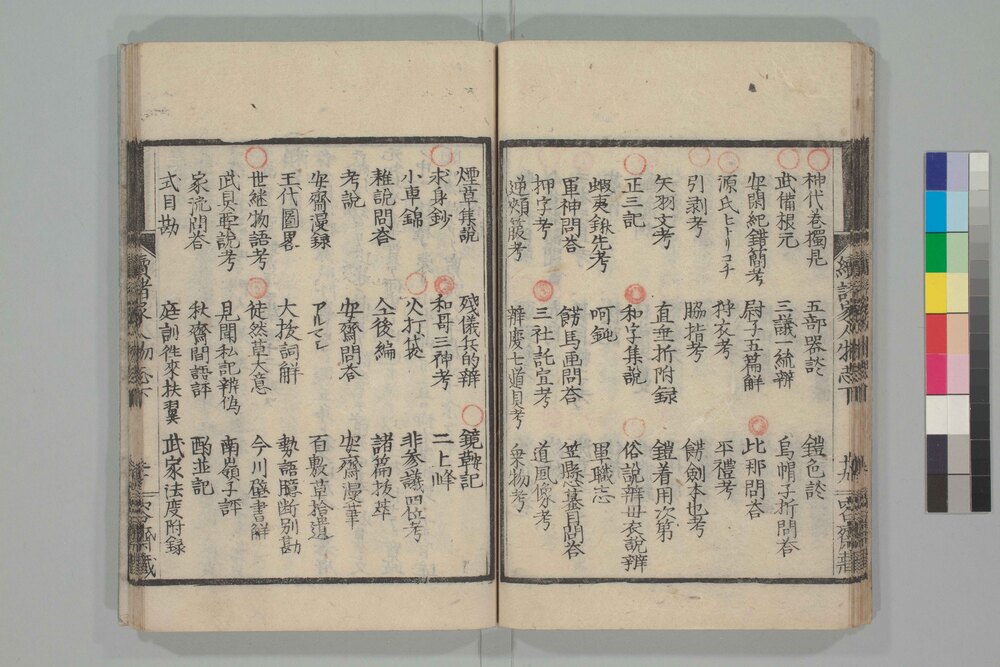 神代巻獨見 五部器談 鎧色談
武備根元 三議一統辨 烏帽子折問答
安閑紀錯簡考 尉子五篇解 比那問答
源氏ヒトリコチ 狩衣考 平禮考
引剥考 脇指考 餝劔本也考
矢羽文考 直垂折附録 鎧着用次第
正三記 和字集説 俗説辨毋衣説辨
蝦夷鍬先考 呵 軍職
軍神問答 餝馬画問答 笠懸蟇目問答
押字考 三社託宣考 道風像考
逆頬箙考 辨慶七道具考 乗物考
續諸家人物志下
煙草集説 殘儀兵的辨 鏡鞍記
求身鈔 和哥三神考 二上峰
小車錦 火打袋 非参議四位考
雜説問答 仝後編 諸篇抜萃
考説 安齋問答 安齋漫筆
安齋漫録 アルマシ 百數草拾遺
王代圖畧 大抜詞解 勢語臆断別勘
世継物語考 徒然草大意 今川壁書解
武具要説考 見聞私記辨偽 南嶺子評
家流問答 秋齋間語評 酌並記
式目勘 庭訓徃來扶翼 武家法度附録
續諸家人物志下